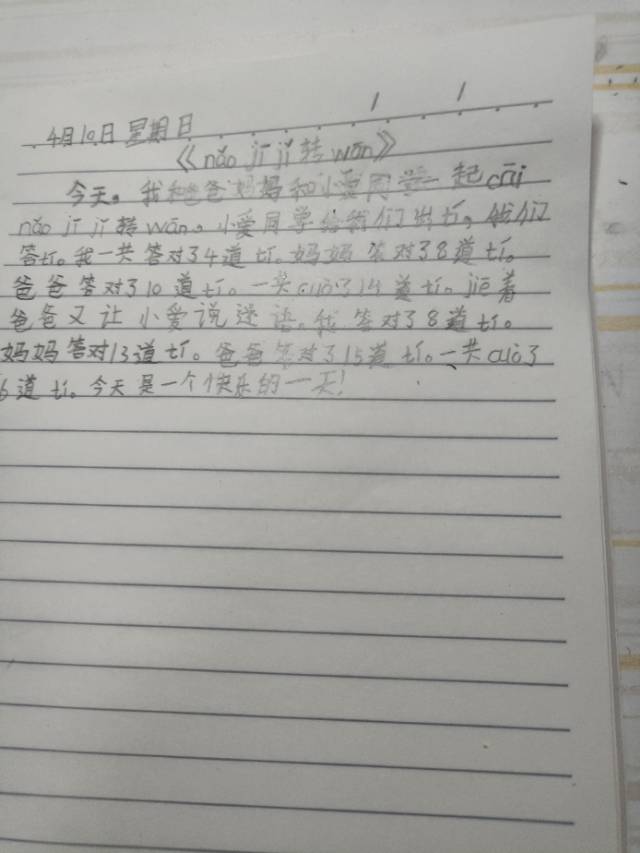 4月10日 星期日
《nǎo jī jǐ 转 wān》
今天。我和爸爸妈妈和小爱同学一起cāi
nǎo jī jí 转 wān。小爱同学给我们出tí，我们
答tí。我一共答对了4道tí。妈妈答对了8道tí。
爸爸答对了10道tí。一共cuò了14道tí。jiē着
爸爸又让小爱说迷语。我答对了8道tí。
妈妈答对13道tí。爸爸答对了15道tí。一共cuò了
6道tí。今天是一个快乐的一天！